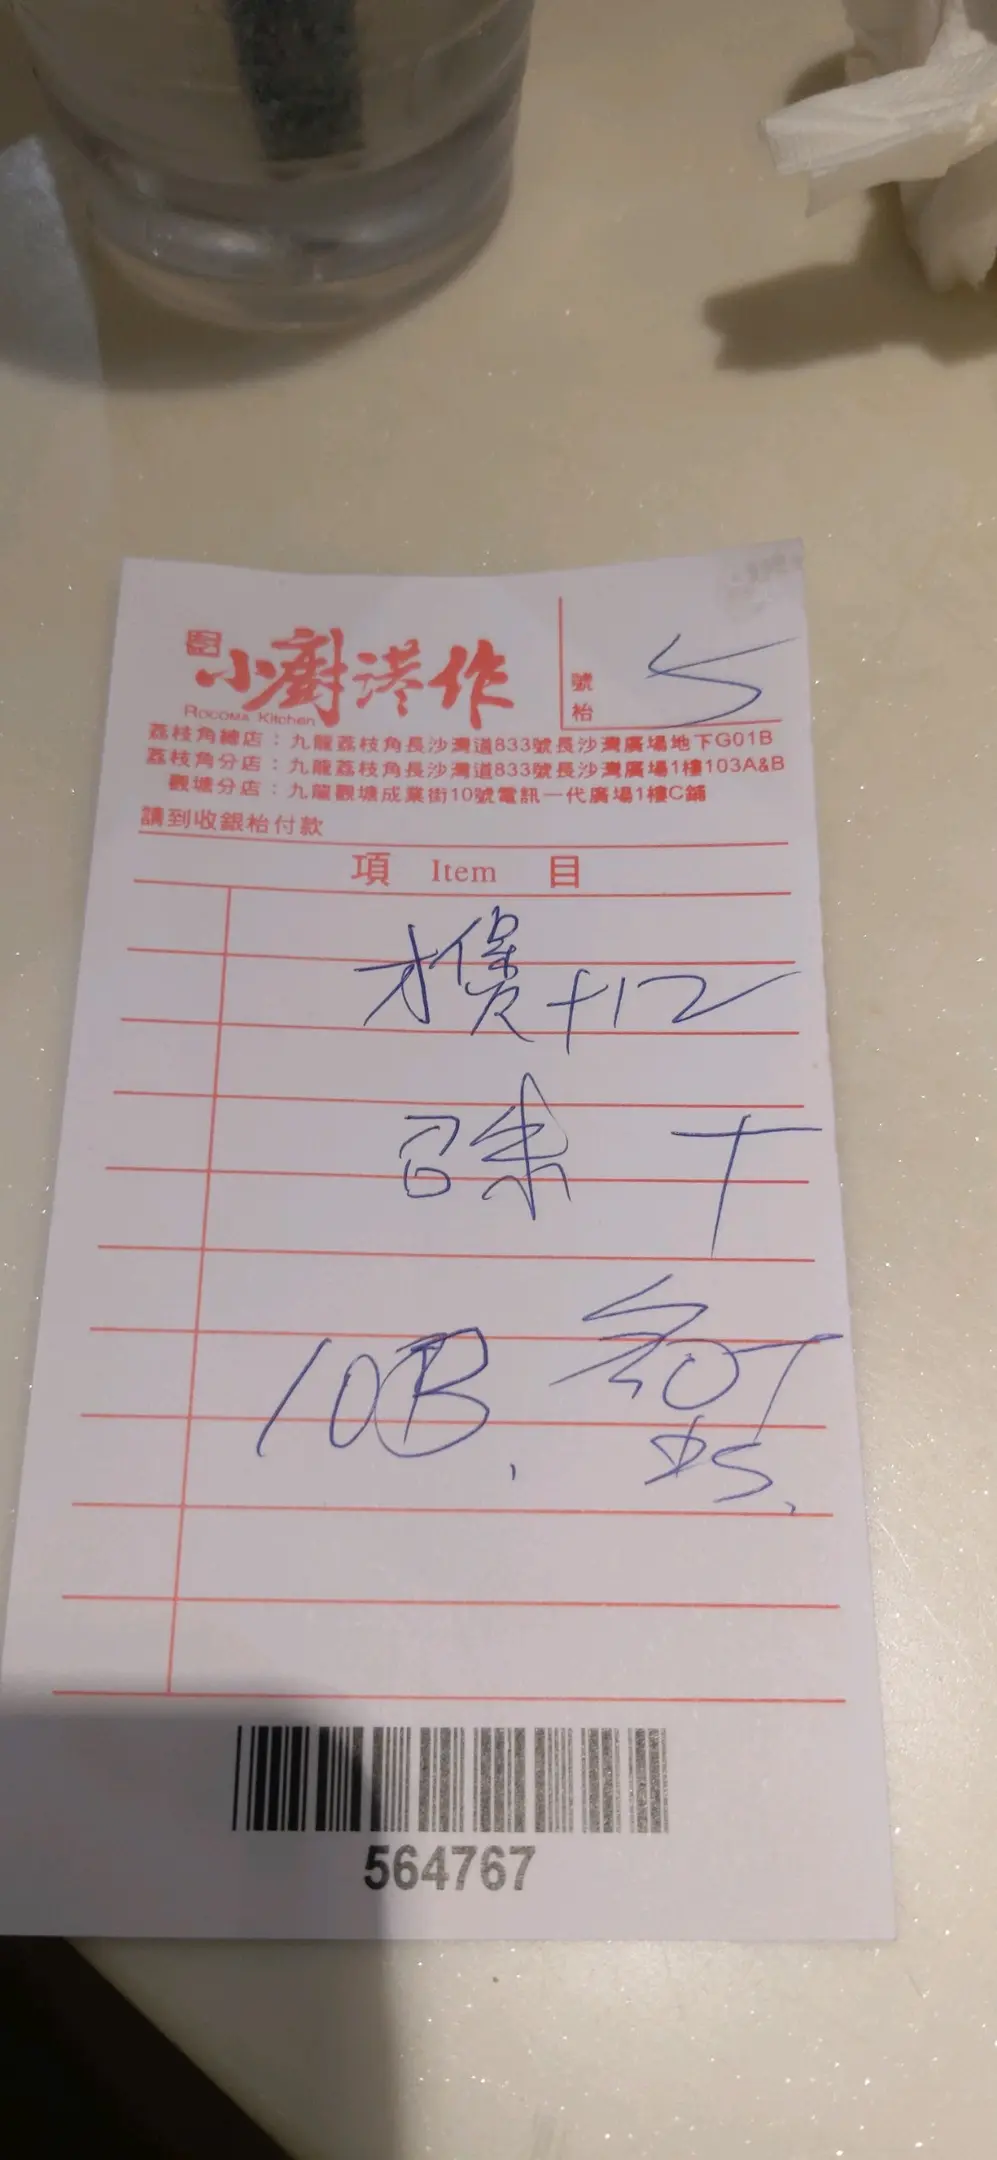 小廚港作
ROCOMA Kitchen
號枱 5
荔枝角總店：九龍荔枝角長沙灣道833號長沙灣廣場地下G01B
荔枝角分店：九龍荔枝角長沙灣道833號長沙灣廣場1樓103A&B
觀塘分店：九龍觀塘成業街10號電訊一代廣場1樓C鋪
請到收銀枱付款
項 Item 目
+12
T
10B.
564767